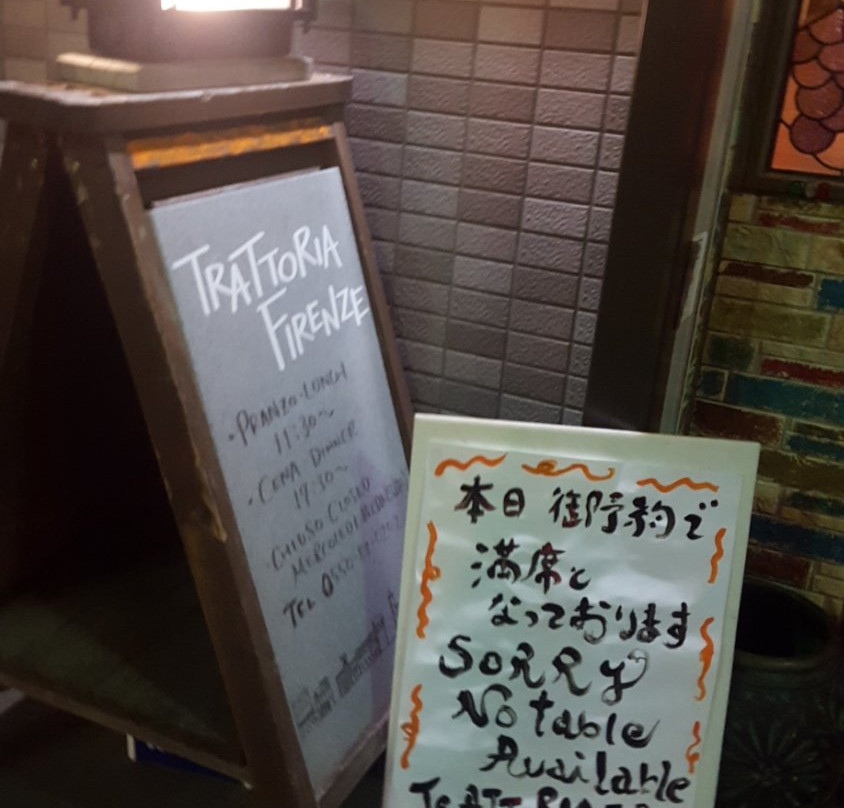 TRATTORIA
FIRENZE
・PRANZO-LUNCH
11:30〜
・CENA DINNER
17:30〜
・CHIUSO CLOSED
MERCOLEDI
TEL
本日 御予約で
満席と
なっております
SORRY
No table
Available